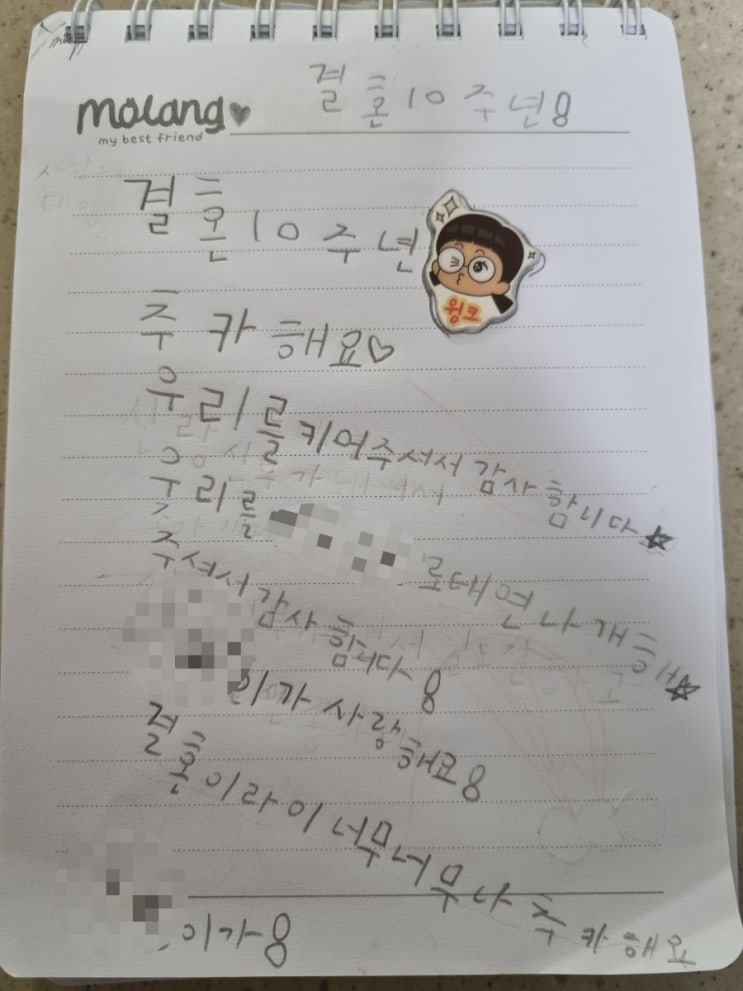 molang
my best friend
결혼10주년8
결혼10주년
윙크
추카해요♡
우리를키여주셔서감사함니다☆
우리를 로태연나개해☆
주셔서감사함니다8
이가사랑해요8
결혼이라이너무너무나추카해요
이가8